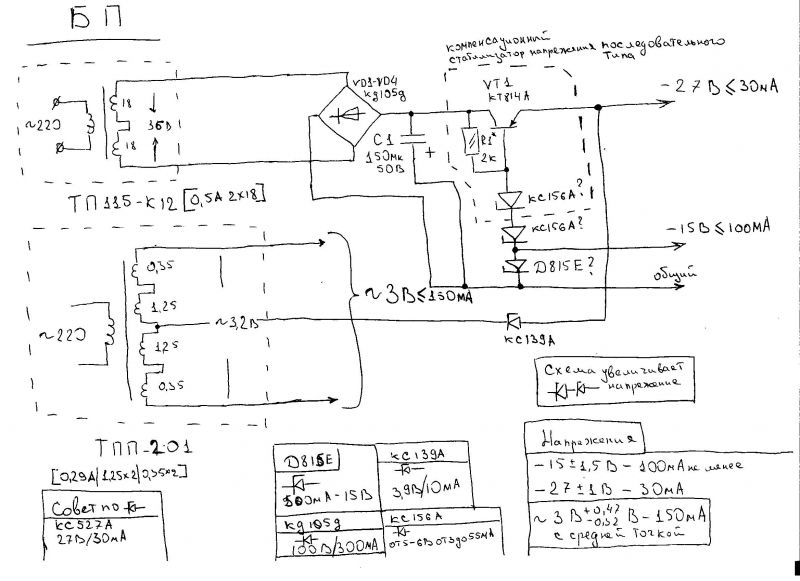 БП
компенсационный
стабилизатор напряжения последовательного
типа
VD1-VD4
кд105д
VT1
КТ814А
-27В ≤ 30мА
~220
18
36В
18
C1
150мк
50В
+
R1*
2к
КС156А?
КС156А?
-15В ≤ 100мА
Д815Е?
общий
ТП115-К12 [0,5А 2х18]
0,35
1,25
~3В ≤ 150мА
~220
~3,2В
КС139А
1,25
0,35
Схема увеличивает
напряжение
ТПП-201
[0,29А|1,25х2|0,35х2]
Совет по
КС527А
27В/30мА
Д815Е
500мА-15В
КС139А
3,9В/10мА
кд105д
100В/300мА
КС156А
от5-6В от3до55мА
Напряжения
-15±1,5В - 100мА не менее
-27±1В - 30мА
~3В +0,47 -0,52 В - 150мА
с средней точкой